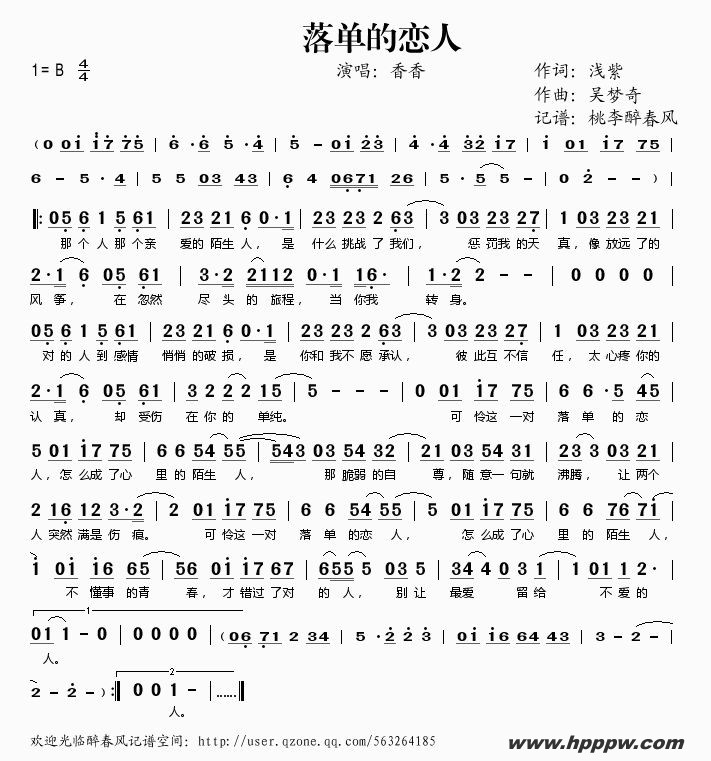 落单的恋人
1=B 4/4 演唱：香香 作词：浅紫
作曲：吴梦奇
记谱：桃李醉春风
(0 0i i7 75 | 6·6 5·4 | 5 - 0i 23 | 4·4 32 i7 | i 0i i7 75
6 - 5·4 | 5 5 03 43 | 6 4 0671 26 | 5·5 5 - | 0 2 - ) |
‖: 05 6 1 5 61 | 23 21 6 0·1 | 23 23 2 63 | 3 03 23 27 | 1 03 23 21
那个人那个亲 爱的陌生人，是 什么挑战了我们， 惩罚我的天 真，像放远了的
2·1 6 05 61 | 3·2 2112 0·1 16· | 1·2 2 - - | 0 0 0 0
风筝， 在忽然 尽头的旅程，当你我 转身。
05 6 1 5 61 | 23 21 6 0·1 | 23 23 2 63 | 3 03 23 27 | 1 03 23 21
对的人到感情 悄悄的破损，是 你和我不愿承认， 彼此互不信 任，太心疼你的
2·1 6 05 61 | 3 2 2 2 15 | 5 - - - | 0 01 i7 75 | 6 6·5 45
认真， 却受伤 在你的 单纯。 可怜这一对 落单的恋
5 01 i7 75 | 6 6 54 55 | 543 03 04 32 | 21 03 54 31 | 23 3 03 21
人，怎么成了心 里的陌生人， 那脆弱的自 尊，随意一句就 沸腾，让两个
2 16 12 3·2 | 2 01 i7 75 | 6 6 54 55 | 5 01 i7 75 | 6 6 76 71
人突然满是伤痕。 可怜这一对 落单的恋人， 怎么成了心 里的陌生人，
i 0i i6 65 | 56 0i 17 17 | 655 5 03 5 | 34 4 03 1 | 1 01 12·
不懂事的青 春，才错过了对 的人，别让 最爱 留给 不爱的
1
01 1 - 0 | 0 0 0 0 | (06 71 2 34 | 5·2 2 3 | 0i i6 64 43 | 3 - 2 -
人。
2
2 - 2 - ) :‖ 0 0 1 - |......‖
人。
欢迎光临醉春风记谱空间：http://user.qzone.qq.com/563264185
www.hpppw.com